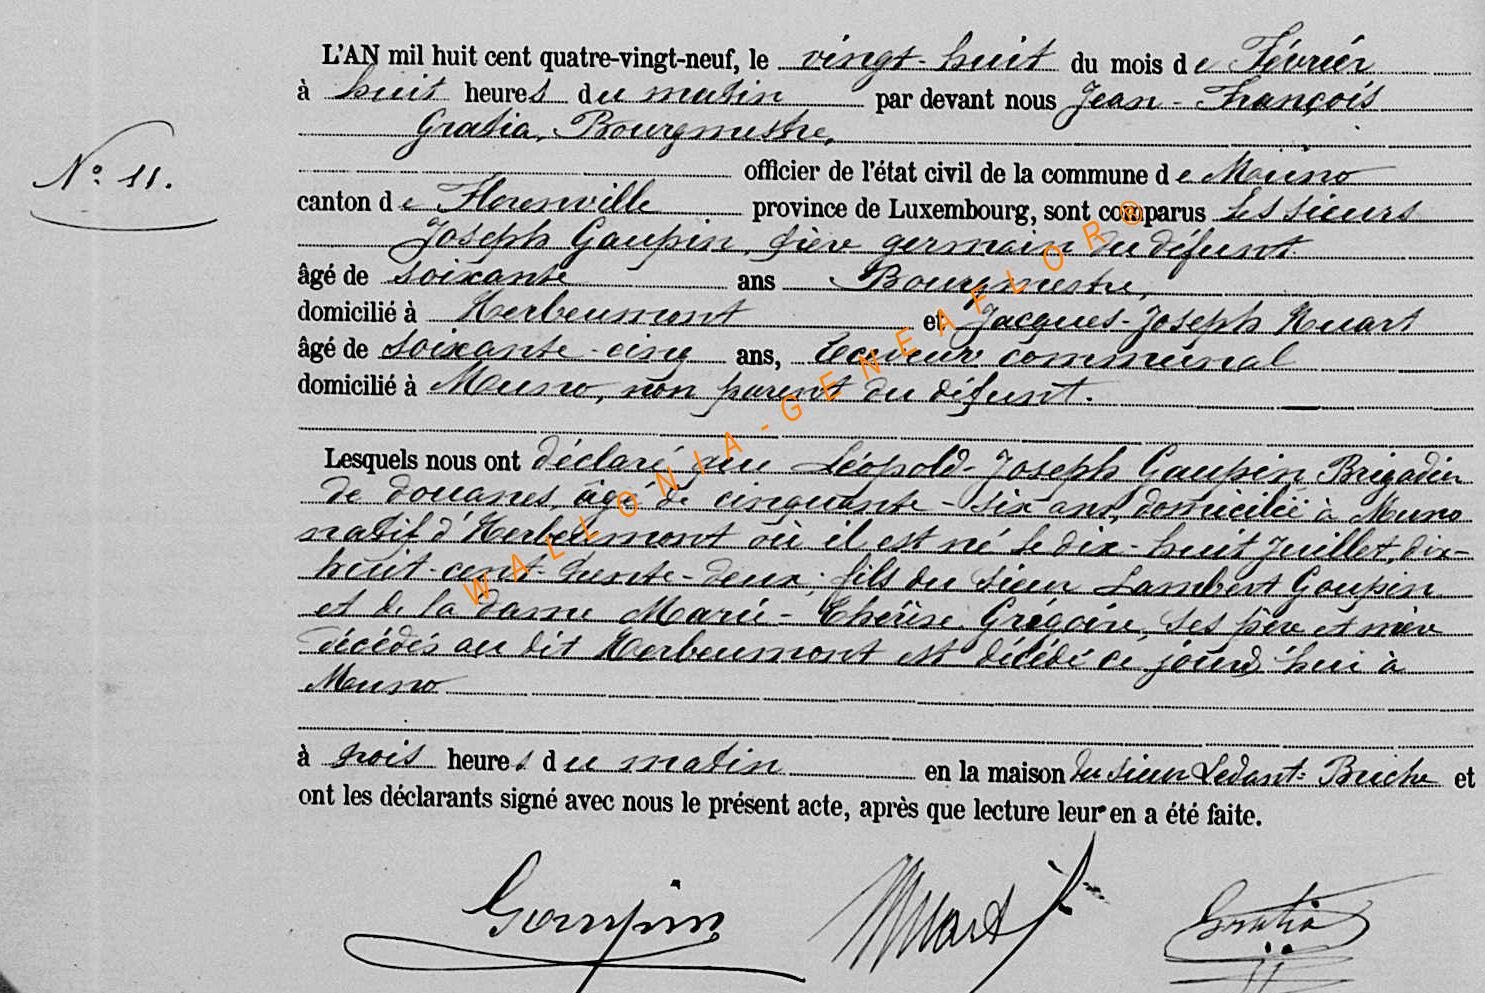 L'AN mil huit cent quatre-vingt-neuf, le vingt-huit du mois de Février
à huit heures du matin par devant nous Jean-François
Gratia, Bourgmestre,
N° 11.
officier de l'état civil de la commune de Muno
canton de Florenville province de Luxembourg, sont comparus Les sieurs
Joseph Goupin, frère germain du défunt
âgé de soixante ans Bourgmestre,
domicilié à Herbeumont et Jacques-Joseph Huart
âgé de soixante-cinq ans, Receveur communal
domicilié à Muno, non parent du défunt.
Lesquels nous ont déclaré que Léopold-Joseph Goupin Brigadier
de douanes, âgé de cinquante-six ans, domicilié à Muno
natif d'Herbeumont où il est né le dix-huit Juillet, dix-
huit-cent-trente-deux, fils du sieur Lambert Goupin
et de la dame Marie-Thérèse Grégoire, ses père et mère
décédés au dit Herbeumont est décédé ce jourd'hui à
Muno
à trois heures du matin en la maison du sieur Ledant-Briche et
ont les déclarants signé avec nous le présent acte, après que lecture leur en a été faite.
Goupin Huart Gratia
WALLONIA-GENEAFLOR®